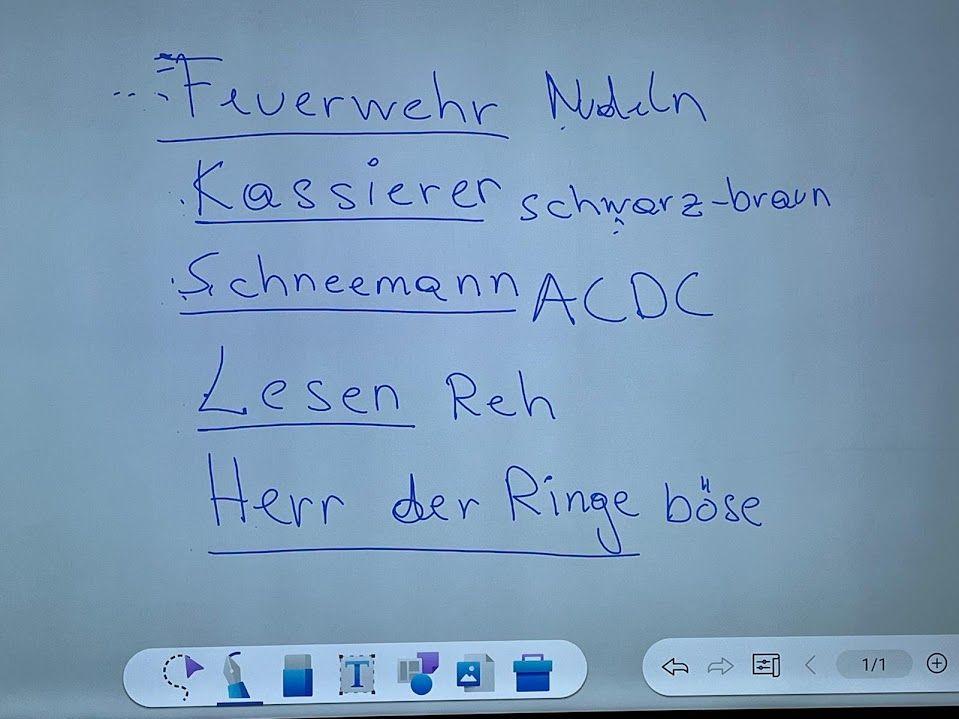 Feuerwehr Nudeln
Kassierer schwarz-braun
Schneemann ACDC
Lesen Reh
Herr der Ringe böse
T
1/1